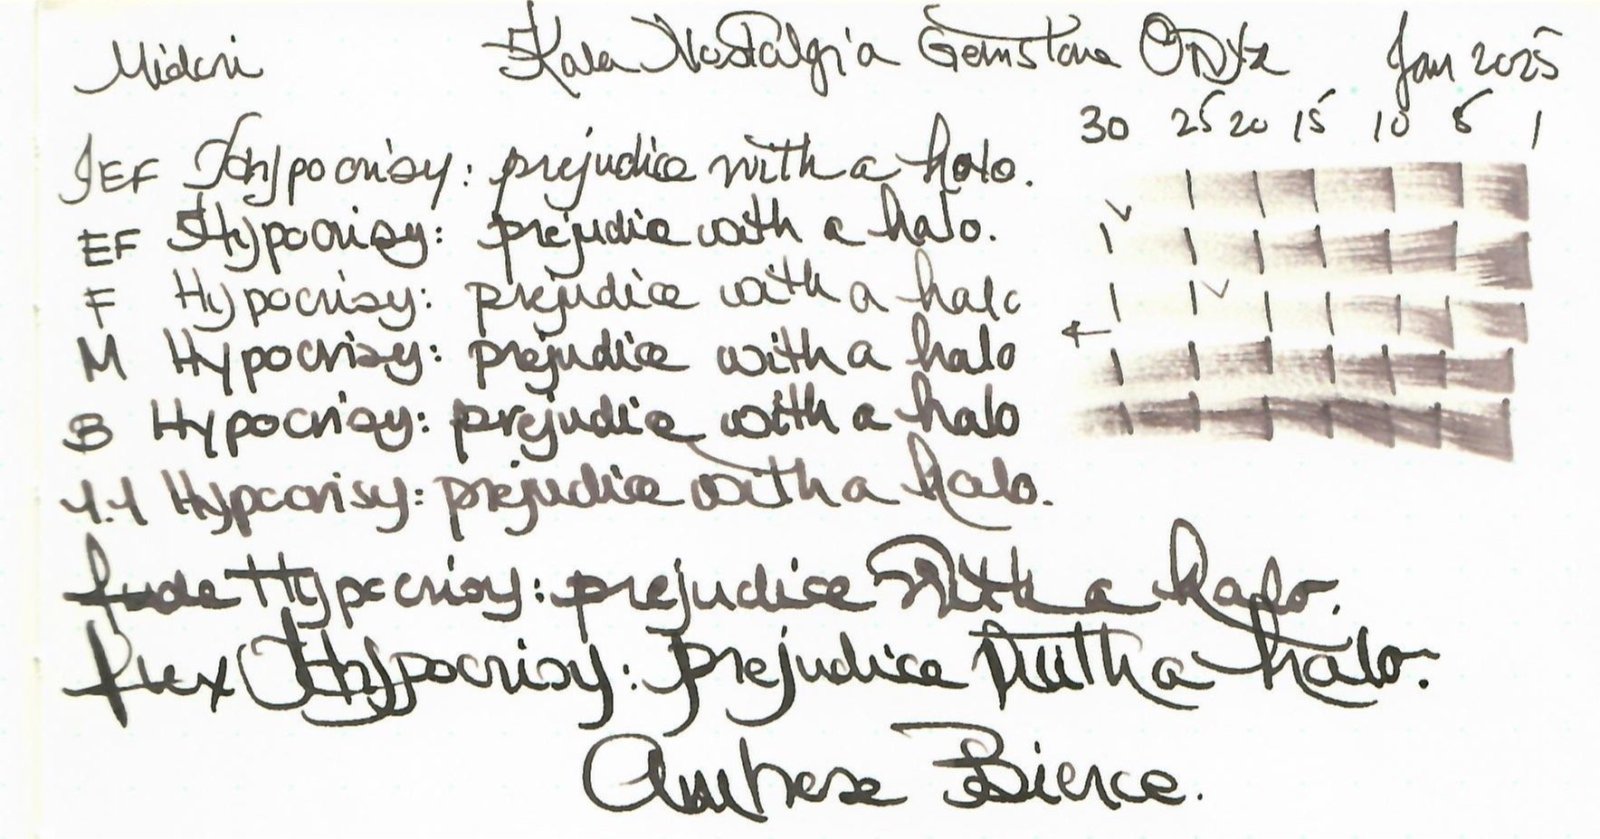 Midori Kala Nostalgia Gemstone Onyx Jan 2025
30 25 20 15 10 5 1
JEF Hypocrisy: prejudice with a halo.
EF Hypocrisy: prejudice with a halo.
F Hypocrisy: prejudice with a halo
M Hypocrisy: prejudice with a halo
B Hypocrisy: prejudice with a halo
1.1 Hypocrisy: prejudice with a halo.
fude Hypocrisy: prejudice with a halo.
flex Hypocrisy: prejudice with a halo.
Ambrose Bierce.